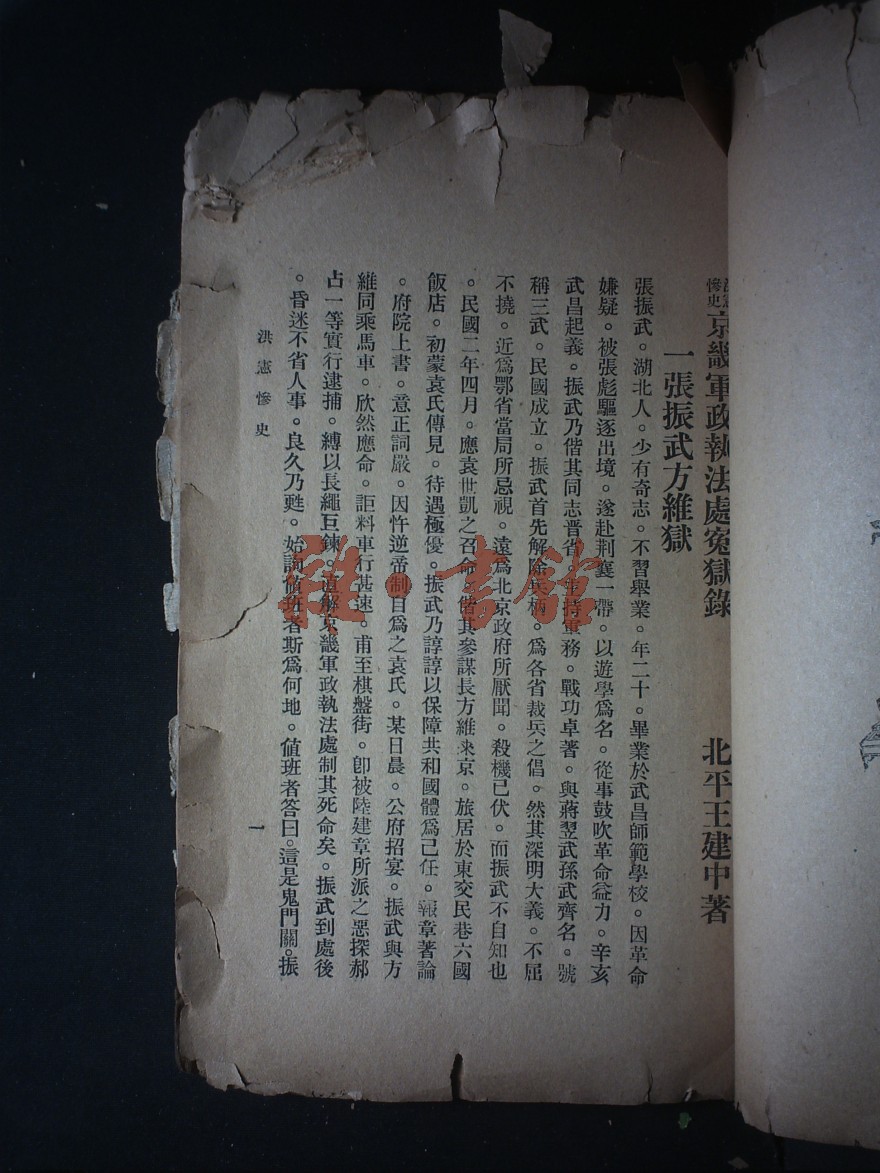 洪憲慘史京畿軍政執法處寃獄錄　北平王建中著
一張振武方維獄
張振武。湖北人。少有奇志。不習舉業。年二十。畢業於武昌師範學校。因革命
嫌疑。被張彪驅逐出境。遂赴荆襄一帶。以遊學爲名。從事鼓吹革命益力。辛亥
武昌起義。振武乃偕其同志晋省。主持軍務。戰功卓著。與蔣翌武孫武齊名。號
稱三武。民國成立。振武首先解除兵柄。爲各省裁兵之倡。然其深明大義。不屈
不撓。近爲鄂省當局所忌視。遠爲北京政府所厭聞。殺機已伏。而振武不自知也
。民國二年四月。應袁世凱之召命。偕其參謀長方維來京。旅居於東交民巷六國
飯店。初蒙袁氏傳見。待遇極優。振武乃諄諄以保障共和國體爲己任。報章著論
。府院上書。意正詞嚴。因忤逆帝制自爲之袁氏。某日晨。公府招宴。振武與方
維同乘馬車。欣然應命。詎料車行甚速。甫至棋盤街。卽被陸建章所派之惡探郝
占一等實行逮捕。縛以長繩巨鍊。直解京畿軍政執法處制其死命矣。振武到處後
。昏迷不省人事。良久乃甦。始詢値班者斯爲何地。値班者答曰。這是鬼門關。振
洪憲慘史
一
雜·書館